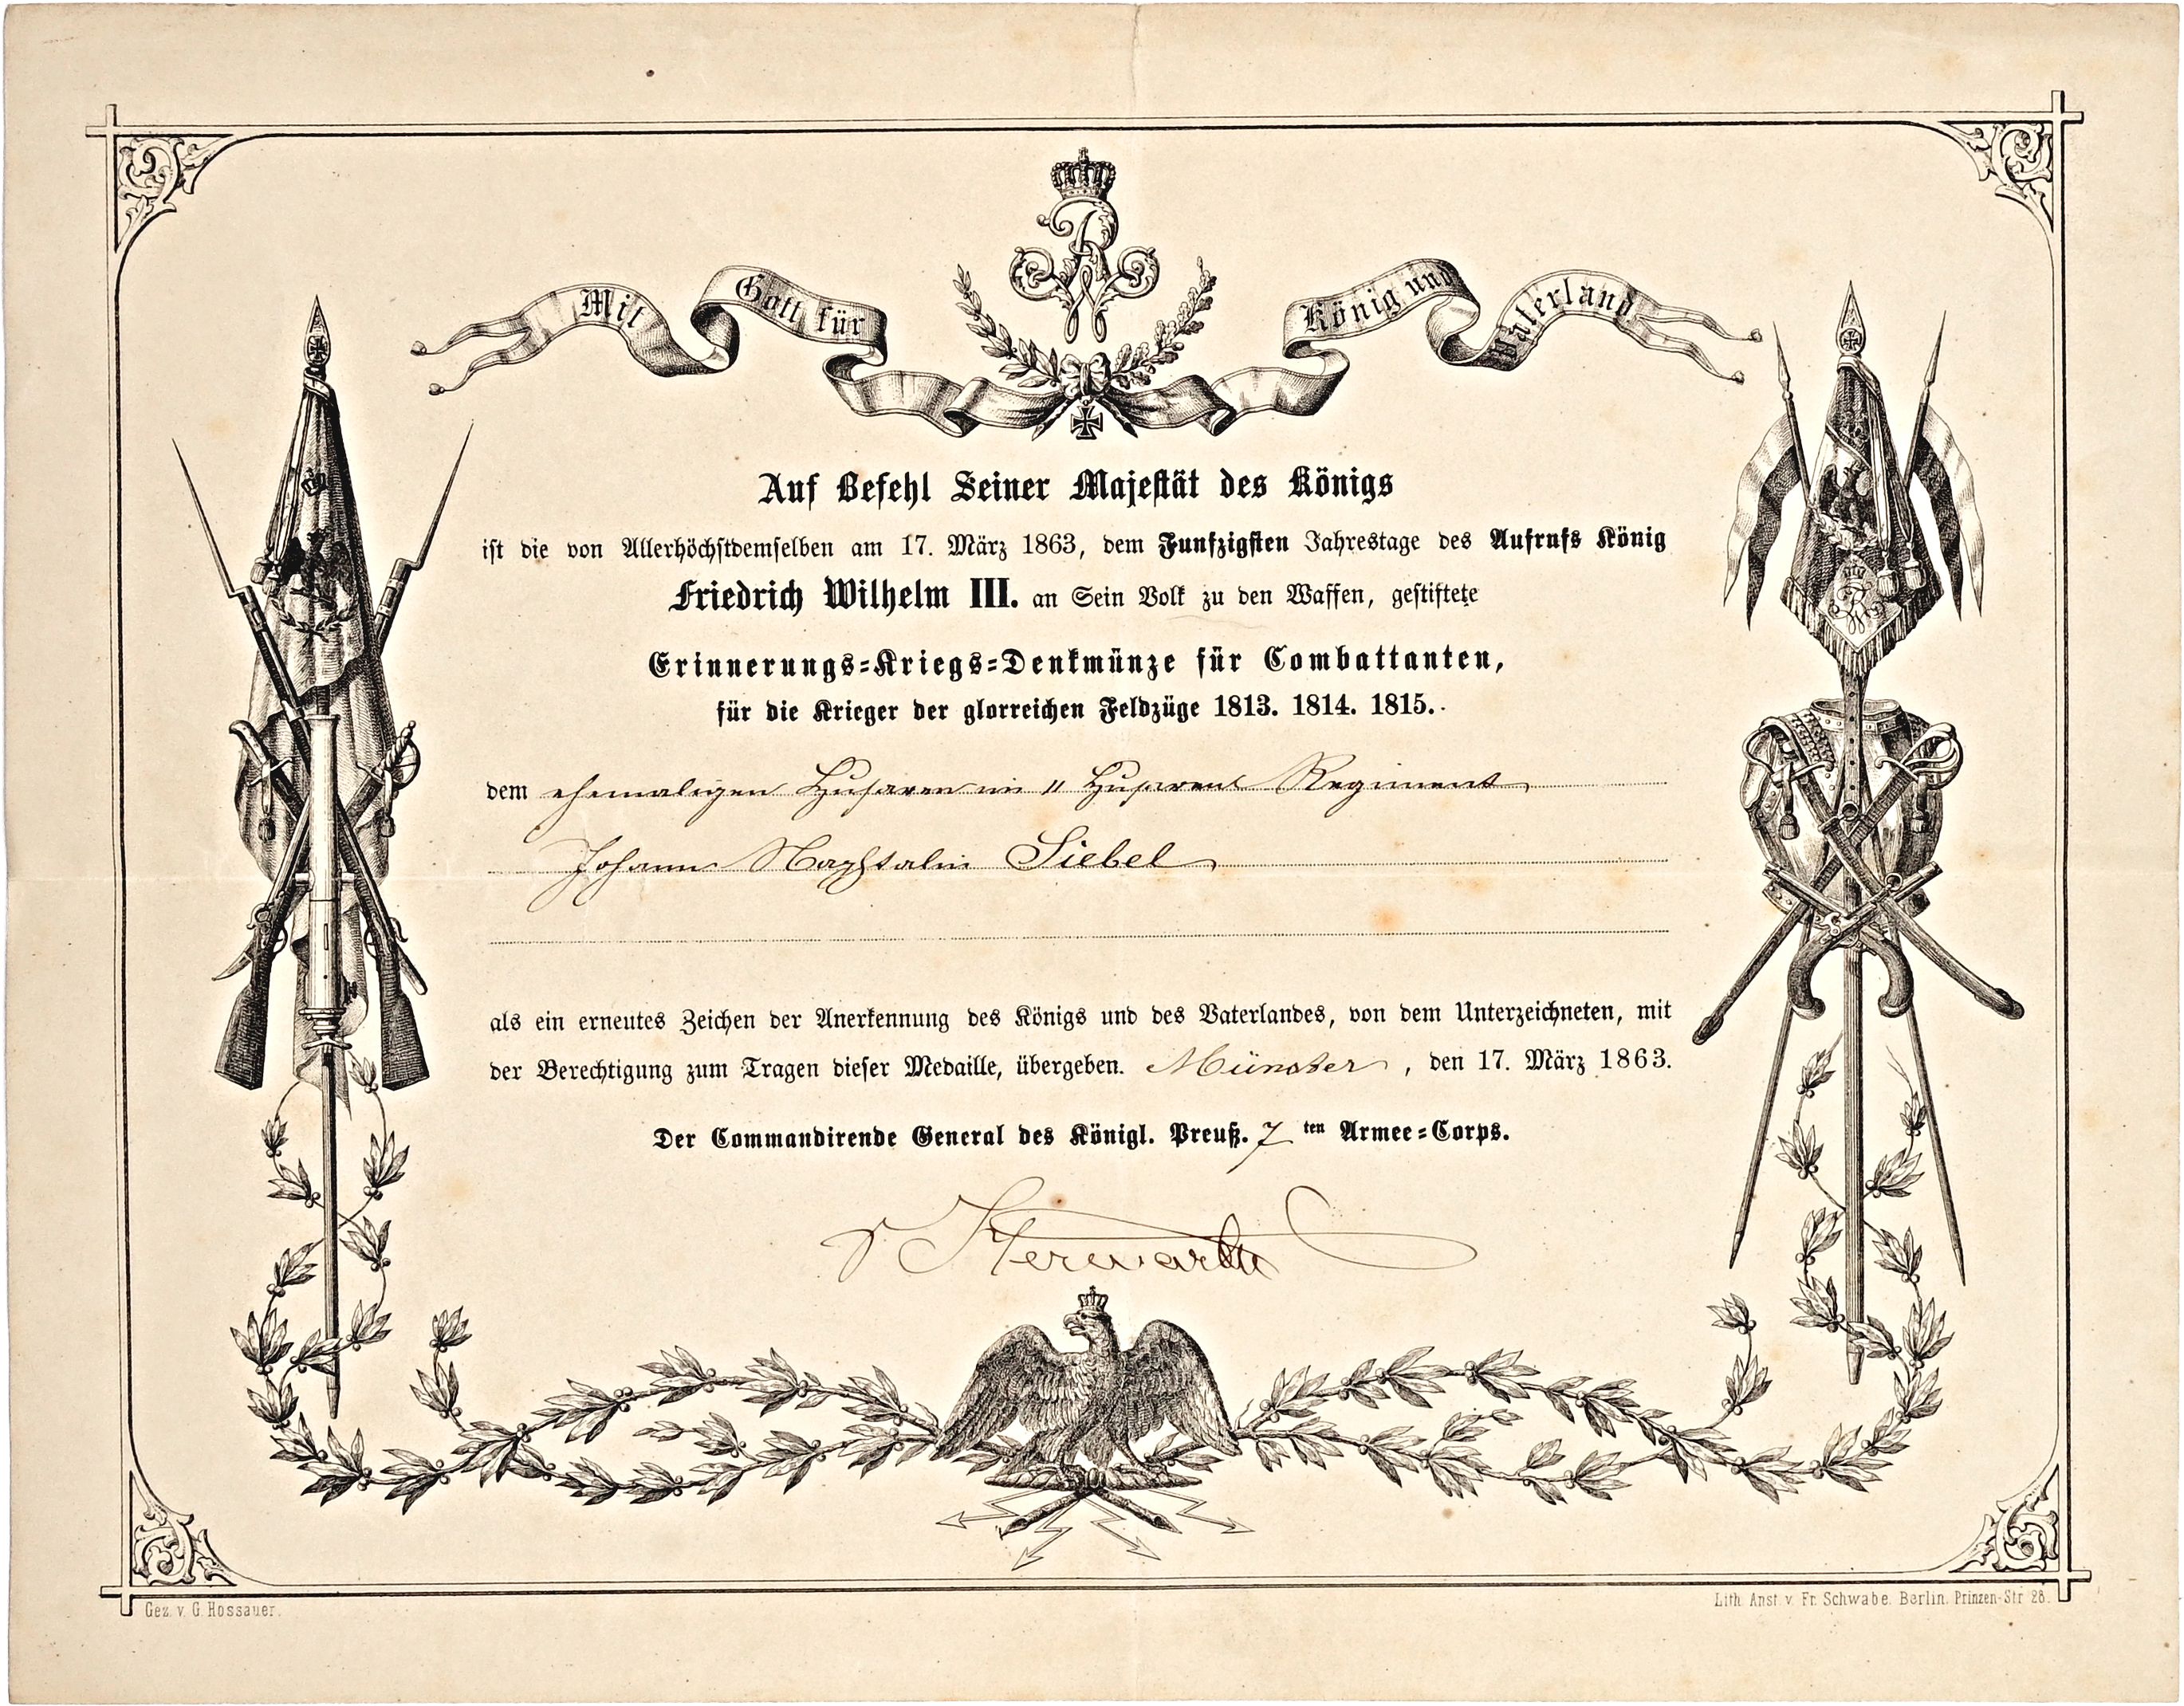 Mit Gott für König und Vaterland
Auf Befehl Seiner Majestät des Königs
ist die von Allerhöchstdemselben am 17. März 1863, dem Funfzigsten Jahrestage des Aufrufs König
Friedrich Wilhelm III. an Sein Volk zu den Waffen, gestiftete
Erinnerungs-Kriegs-Denkmünze für Combattanten,
für die Krieger der glorreichen Feldzüge 1813. 1814. 1815.
dem ehemaligen Husaren im 11 Husaren Regiment
Johann Naphtalin Siebel
als ein erneutes Zeichen der Anerkennung des Königs und des Vaterlandes, von dem Unterzeichneten, mit
der Berechtigung zum Tragen dieser Medaille, übergeben. Münster, den 17. März 1863.
Der Commandirende General des Königl. Preuß. 7 ten Armee-Corps.
v Herwarth
Gez. v. G. Hossauer.
Lith. Anst. v. Fr. Schwabe. Berlin. Prinzen-Str 28.